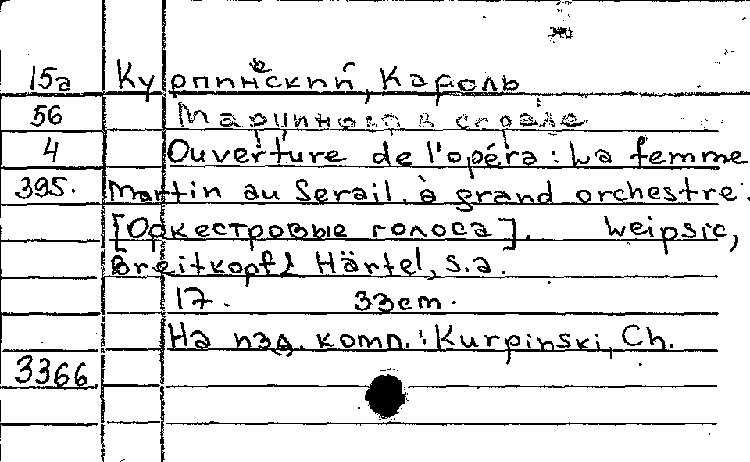 15а Курпиньский, Кароль
56 Марцинова в серале
4 Ouverture de l'opéra: La femme
395. Martin au Serail. à grand orchestre.
[Оркестровые голоса]. Leipsic,
Breitkopf & Härtel, s.a.
17. 33cm.
На изд. комп.: Kurpinski, Ch.
3366